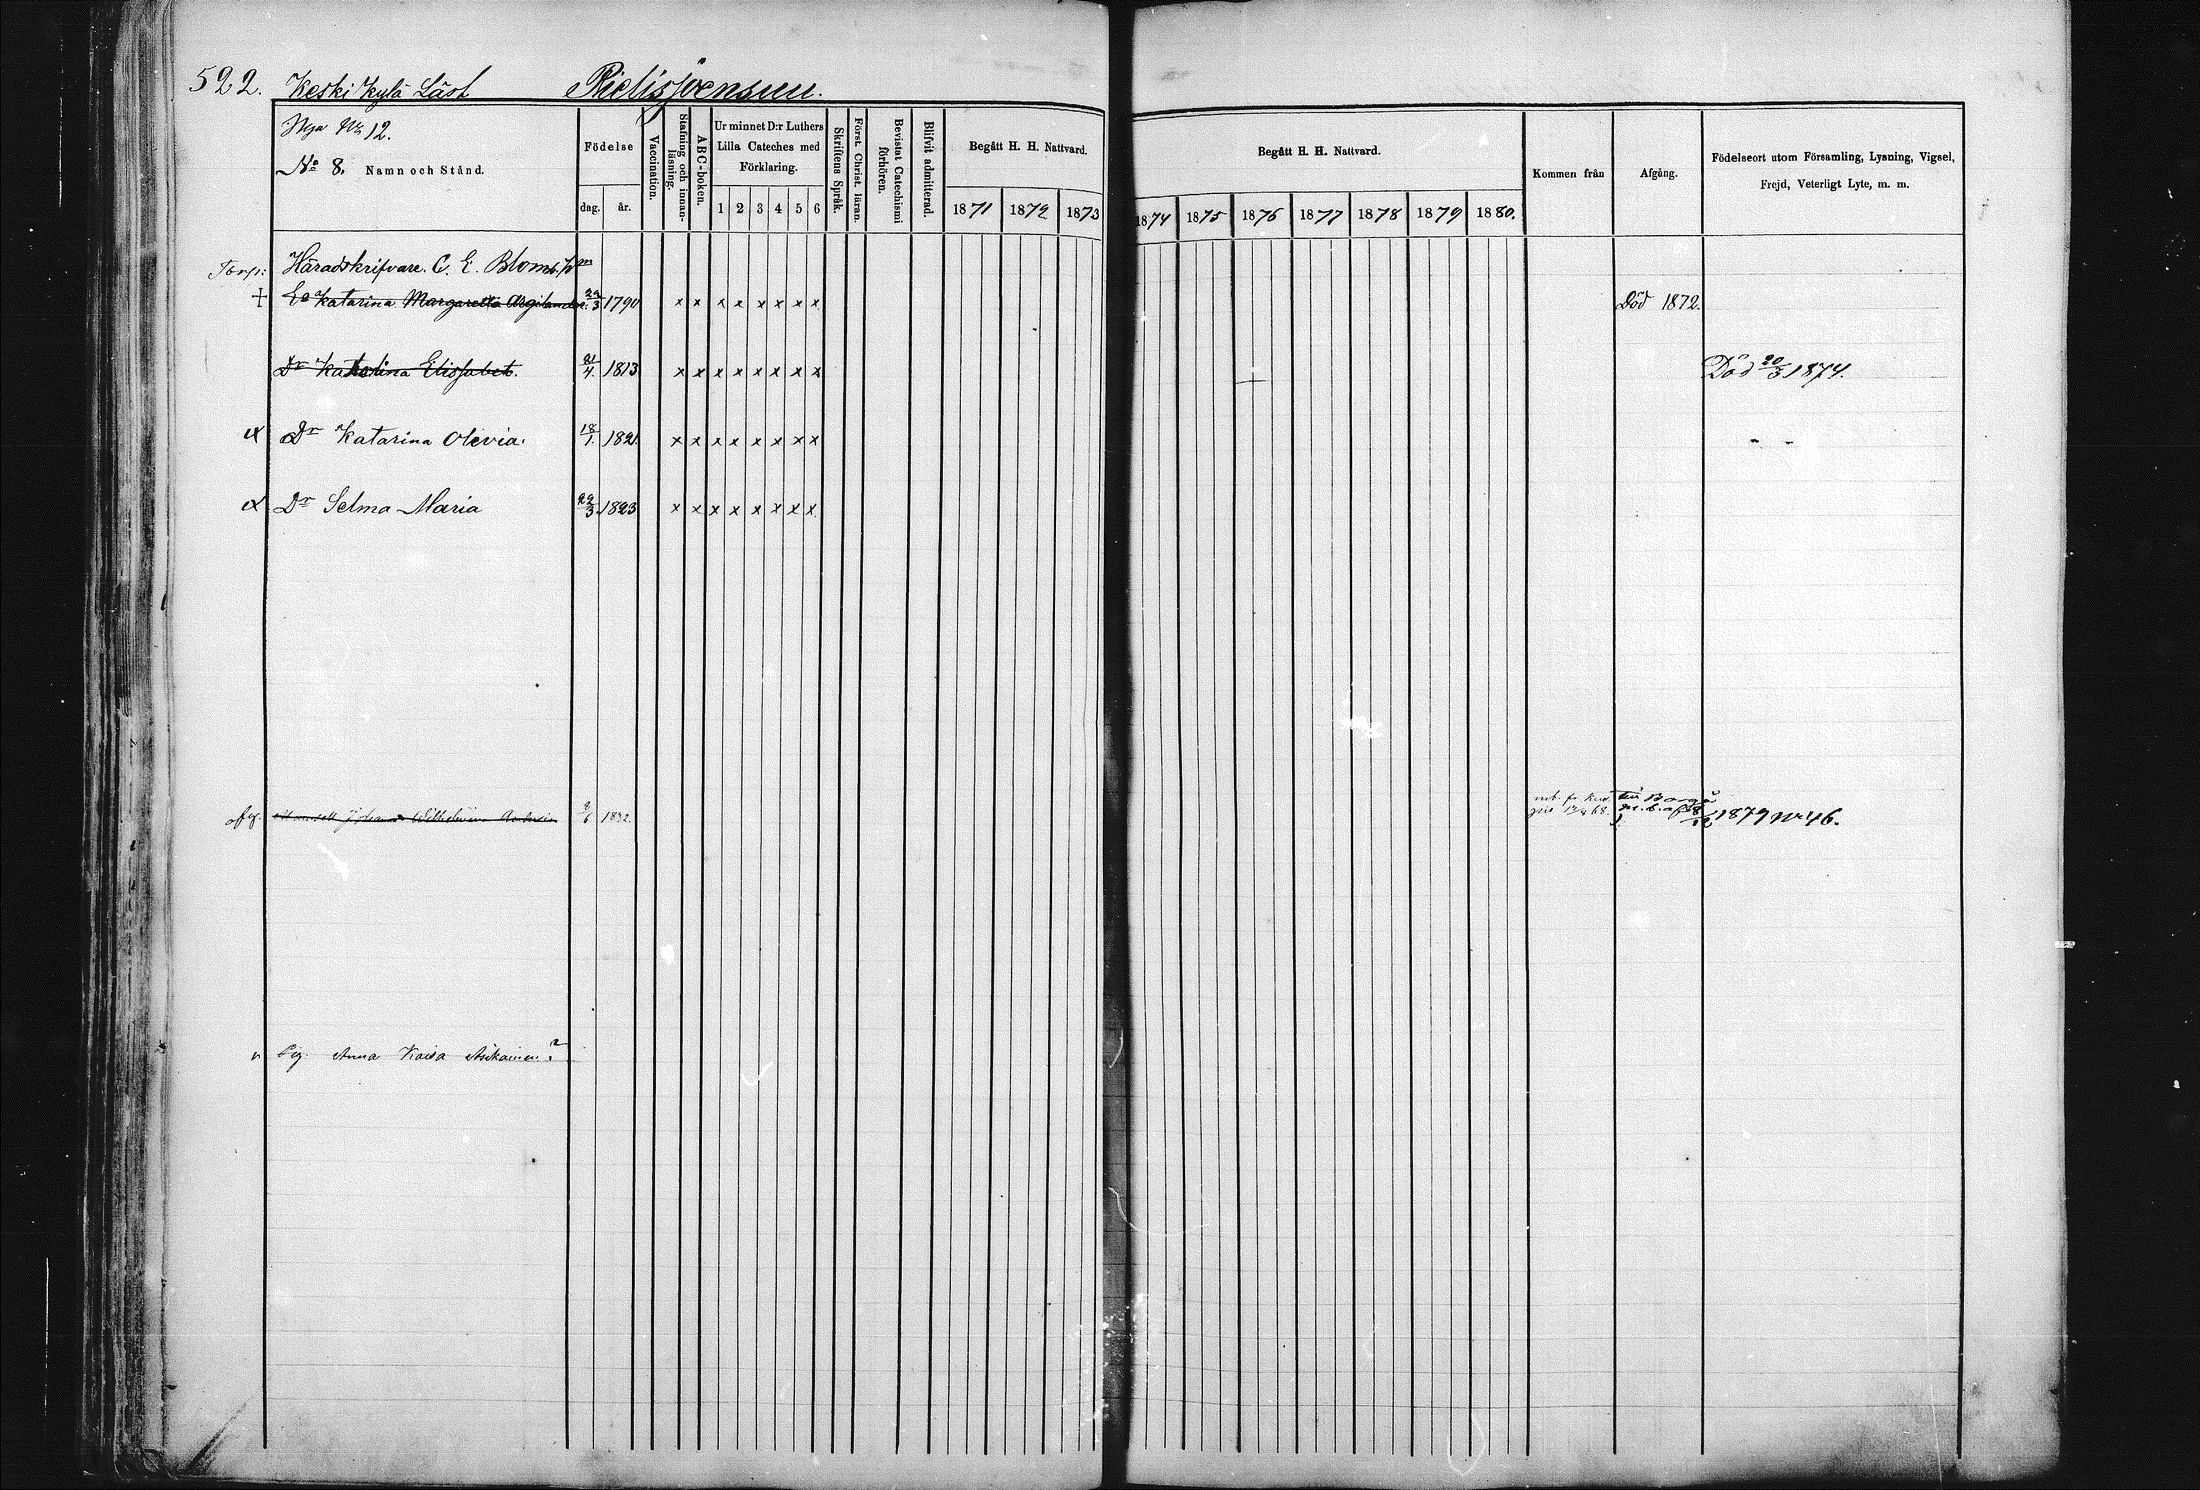 522. Keski Kylä Läst Pielisjoensuu.
Nya No 12.
No 8. Namn och Stånd.
Födelse
dag. år.
Vaccination.
Stafning och innanläsning.
ABC-boken.
Ur minnet D:r Luthers
Lilla Cateches med
Förklaring.
1 2 3 4 5 6
Skriftens Språk.
Först. Christ. läran.
Bevistat Catechismi förhören.
Blifvit admitterad.
Begått H. H. Nattvard.
1871 1872 1873
Begått H. H. Nattvard.
1874 1875 1876 1877 1878 1879 1880.
Kommen från
Afgång.
Födelseort utom Församling, Lysning, Vigsel,
Frejd, Veterligt Lyte, m. m.
Häradskrifvare. C. E. Blom
+ Ea Katarina Margaretta Argilander 29/3 1790 x x x x x x x x Död 1872.
Dr Elisabet. 21/4. 1813 x x x x x x x x Död 20/3 1874.
Dr Katarina Olivia. 18/1. 1821 x x x x x x x x
Dr Selma Maria 29/3. 1823 x x x x x x x x
afg. Johanna Wilhelmina 1832. 1879 No 46.
Pig. Anna Kaisa Asikainen ?